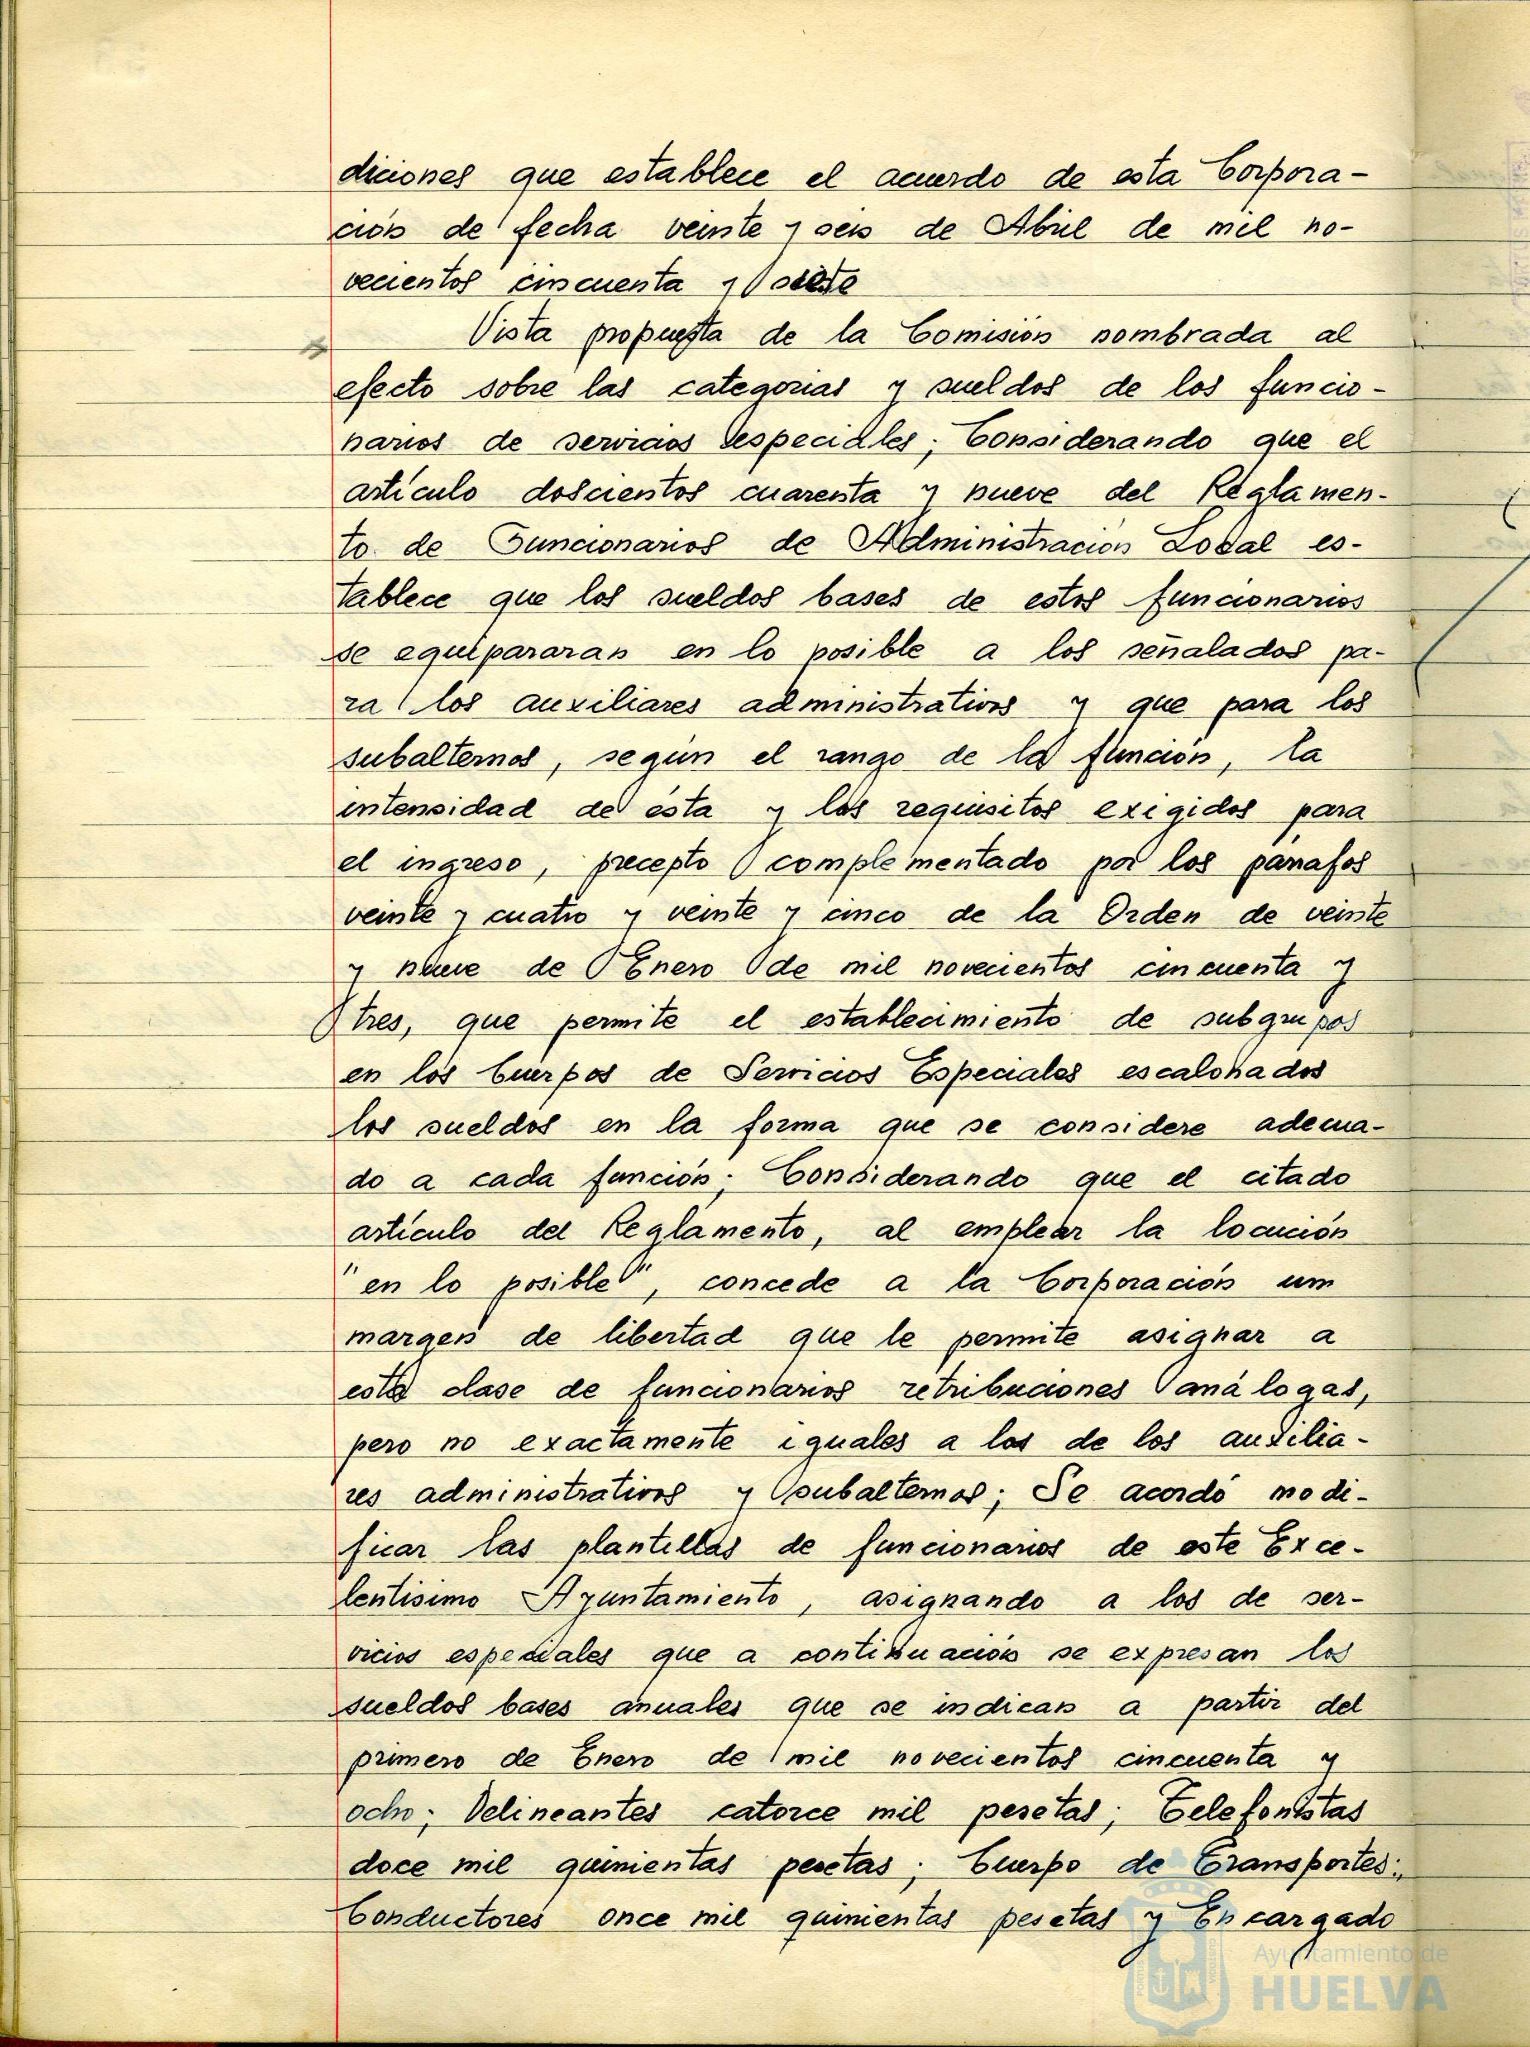 diciones que establece el acuerdo de esta Corpora-
ción de fecha veinte y seis de Abril de mil no-
vecientos cincuenta y siete
Vista propuesta de la Comisión nombrada al
efecto sobre las categorias y sueldos de los funcio-
narios de servicios especiales; Considerando que el
artículo doscientos cuarenta y nueve del Reglamen-
to de Funcionarios de Administración Local es-
tablece que los sueldos bases de estos funcionarios
se equipararan en lo posible a los señalados pa-
ra los auxiliares administrativos y que para los
subalternos, según el rango de la función, la
intensidad de ésta y los requisitos exigidos para
el ingreso, precepto complementado por los párrafos
veinte y cuatro y veinte y cinco de la Orden de veinte
y nueve de Enero de mil novecientos cincuenta y
tres, que permite el establecimiento de subgrupos
en los Cuerpos de Servicios Especiales escalonados
los sueldos en la forma que se considere adecua-
do a cada función; Considerando que el citado
artículo del Reglamento, al emplear la locución
"en lo posible", concede a la Corporación um
margen de libertad que le permite asignar a
esta clase de funcionarios retribuciones análogas,
pero no exactamente iguales a los de los auxilia-
res administrativos y subalternos; Se acordó modi-
ficar las plantillas de funcionarios de este Exce-
lentisimo Ayuntamiento, asignando a los de ser-
vicios especiales que a continuación se expresan los
sueldos bases anuales que se indican a partir del
primero de Enero de mil novecientos cincuenta y
ocho; Delineantes catorce mil pesetas; Telefonistas
doce mil quinientas pesetas; Cuerpo de Transportes:,
Conductores once mil quinientas pesetas y Encargado
Ayuntamiento de
HUELVA